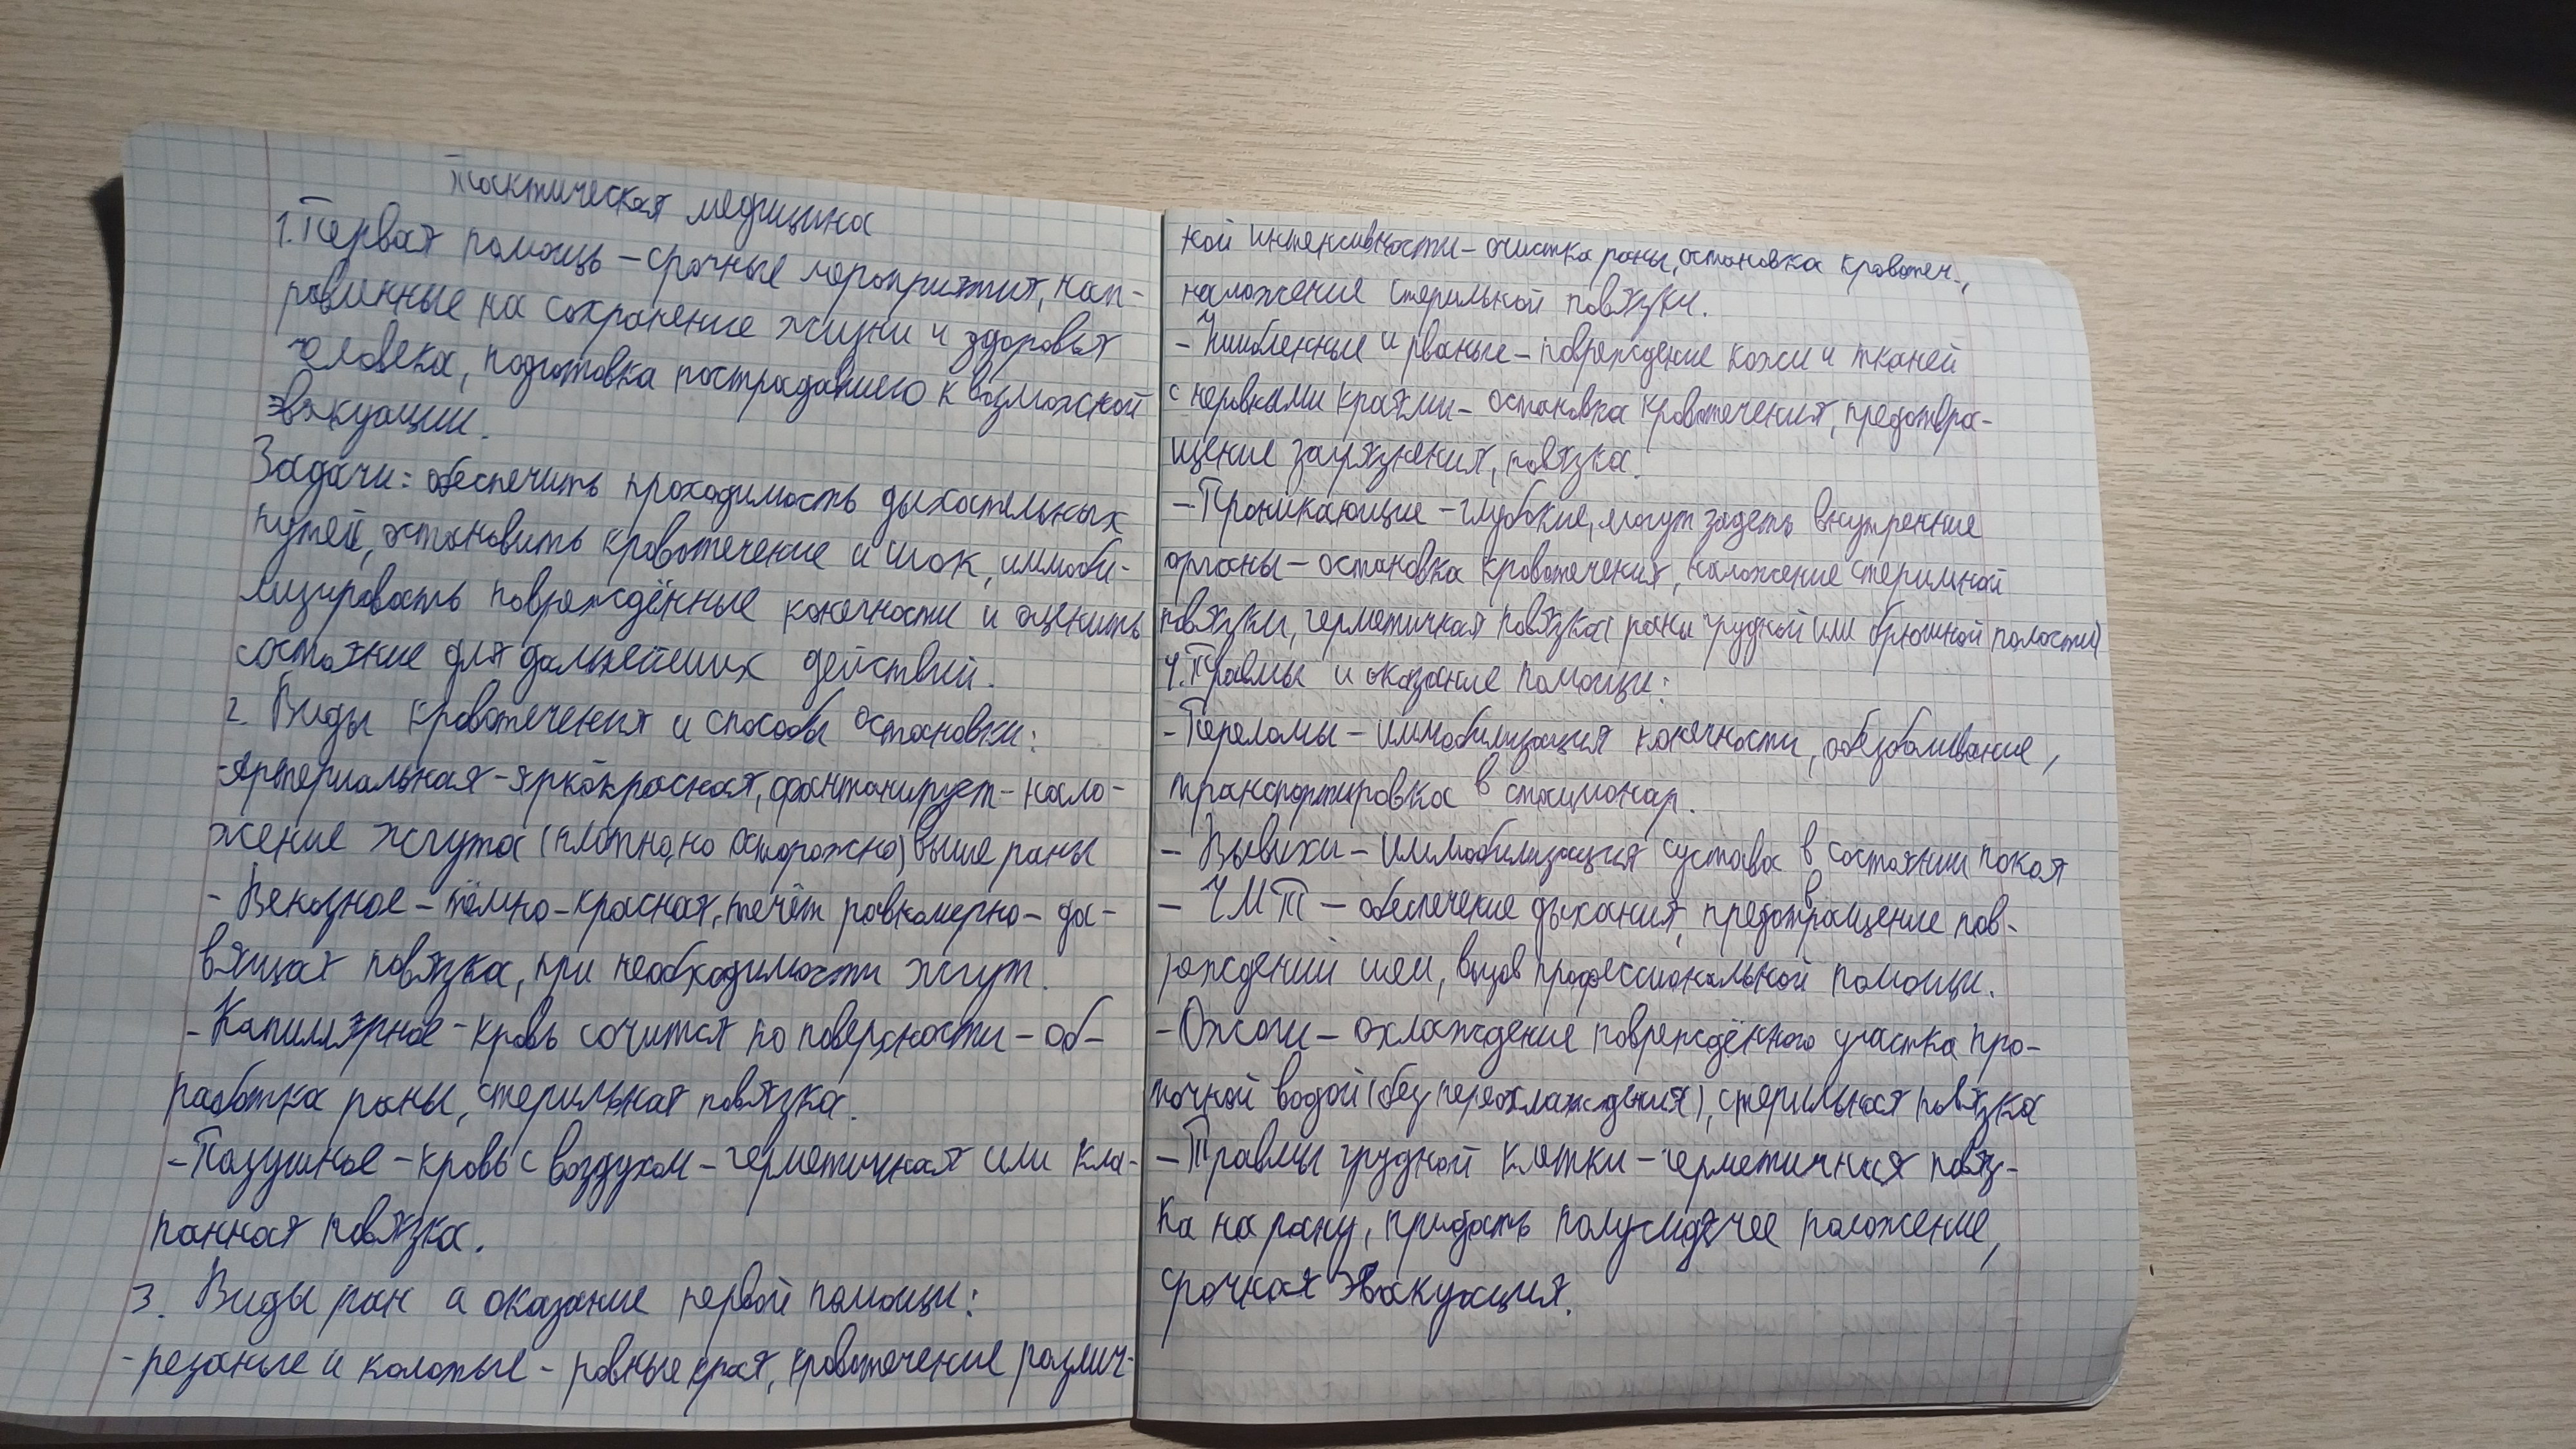 Тактическая медицина
1. Первая помощь – срочные мероприятия, нап-
равлинные на сохранение жизни и здоровья
человека, подготовка пострадавшего к возможной
эвакуации.
Задачи: обеспечить проходимость дыхательных
путей, остановить кровотечение и шок, иммоби-
лизировать повреждённые конечности и оценить
состояние для дальнейших действий.
2. Виды кровотечения и способы остановки:
- Артериальная – яркокрасная, фонтанирует – нало-
жение жгута (плотно, но осторожно) выше раны
- Венозное – тёмно-красная, течёт равномерно – да-
вящая повязка, при необходимости жгут.
- Капиллярное – кровь сочится по поверхности – об-
работка раны, стерильная повязка.
- Пазушное – кровь с воздухом – герметичная или кла-
панная повязка.
3. Виды ран и оказание первой помощи:
- резаные и колотые – ровные края, кровотечение различ-
ной интенсивности – очистка раны, остановка кровотеч.,
наложение стерильной повязки.
- Ушибленные и рваные – повреждение кожи и тканей
с неровными краями – остановка кровотечения, предотвра-
щение загрязнения, повязка.
- Проникающие – глубокие, могут задеть внутренние
органы – остановка кровотечения, наложение стерильной
повязки, герметичная повязка (раны грудной или брюшной полости)
4. Травмы и оказание помощи:
- Переломы – иммобилизация конечности, обезболивание,
транспортировка в стационар.
- Вывихи – иммобилизация сустава в состоянии покоя
- ЧМТ – обеспечение дыхания, предотвращение пов-
реждений шеи, вызов профессиональной помощи.
- Ожоги – охлаждение повреждённого участка про-
точной водой (без переохлаждения), стерильная повязка
- Травмы грудной клетки – герметичная повяз-
ка на рану, придать полусидячее положение,
срочная эвакуация.